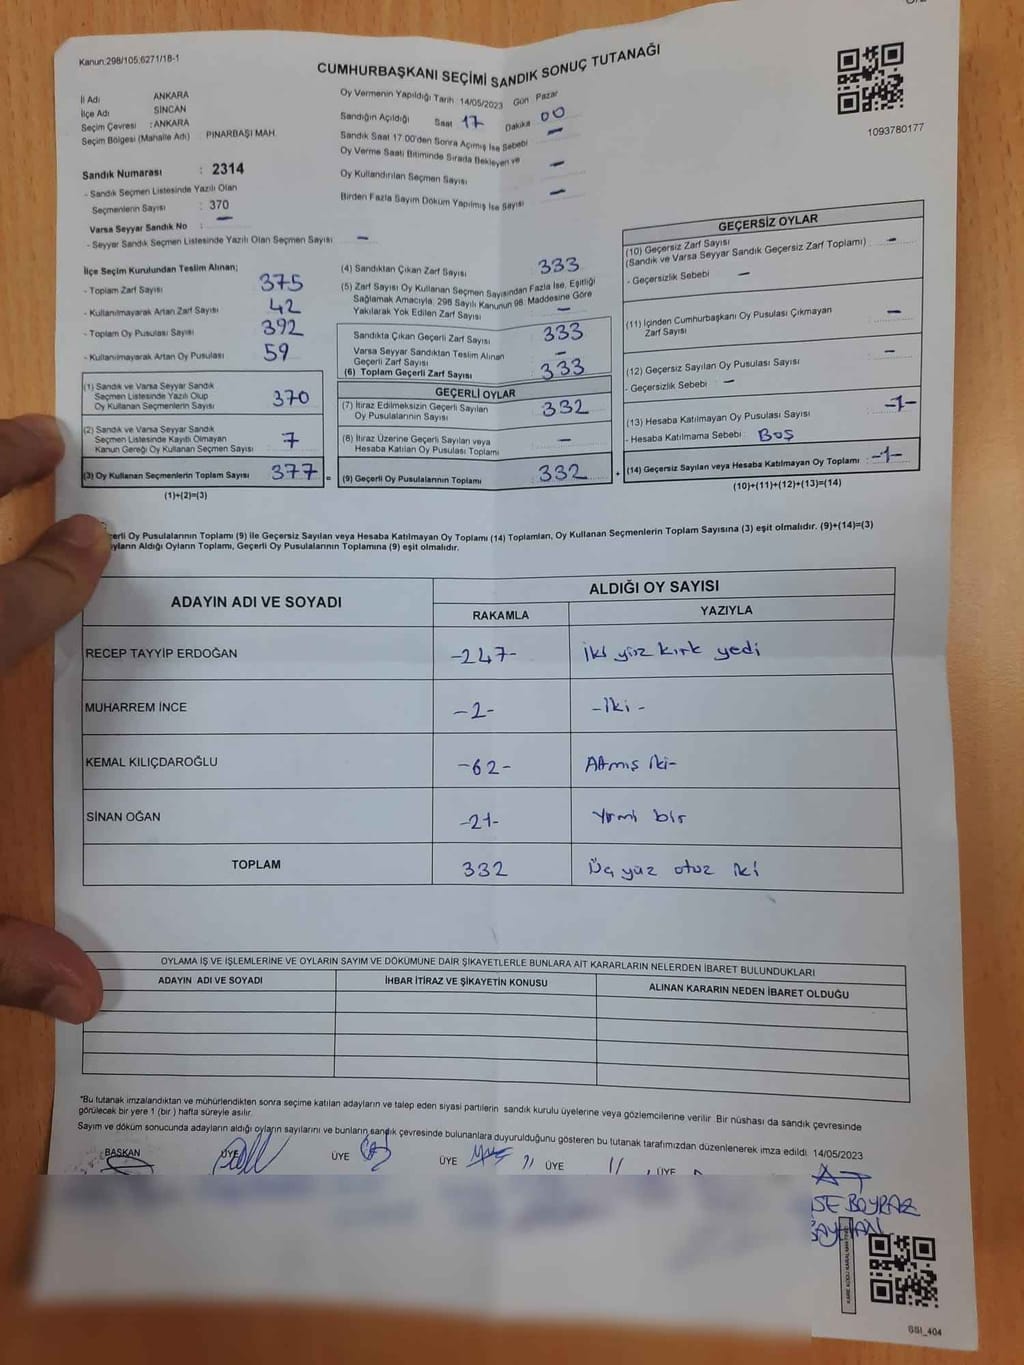 Kanun:298/105:6271/18-1
CUMHURBAŞKANI SEÇİMİ SANDIK SONUÇ TUTANAĞI
1093780177
İl Adı ANKARA
İlçe Adı SİNCAN
Seçim Çevresi : ANKARA
Seçim Bölgesi (Mahalle Adı) : PINARBAŞI MAH.
Sandık Numarası : 2314
- Sandık Seçmen Listesinde Yazılı Olan
Seçmenlerin Sayısı : 370
Varsa Seyyar Sandık No : -
- Seyyar Sandık Seçmen Listesinde Yazılı Olan Seçmen Sayısı : -
Oy Vermenin Yapıldığı Tarih : 14/05/2023 Gün Pazar
Sandığın Açıldığı Saat 17 Dakika 00
Sandık Saat 17.00'den Sonra Açımış İse Sebebi -
Oy Verme Saati Bitiminde Sırada Bekleyen ve
Oy Kullandırılan Seçmen Sayısı -
Birden Fazla Sayım Döküm Yapılmış İse Sayısı -
İlçe Seçim Kurulundan Teslim Alınan;
- Toplam Zarf Sayısı : 375
- Kullanılmayarak Artan Zarf Sayısı : 42
- Toplam Oy Pusulası Sayısı : 392
- Kullanılmayarak Artan Oy Pusulası : 59
(1) Sandık ve Varsa Seyyar Sandık
Seçmen Listesinde Yazılı Olup
Oy Kullanan Seçmenlerin Sayısı : 370
(2) Sandık ve Varsa Seyyar Sandık
Seçmen Listesinde Kayıtlı Olmayan
Kanun Gereği Oy Kullanan Seçmen Sayısı : 7
(3) Oy Kullanan Seçmenlerin Toplam Sayısı : 377
(1)+(2)=(3)
(4) Sandıktan Çıkan Zarf Sayısı : 333
(5) Zarf Sayısı Oy Kullanan Seçmen Sayısından Fazla İse, Eşitliği
Sağlamak Amacıyla, 298 Sayılı Kanunun 98. Maddesine Göre
Yakılarak Yok Edilen Zarf Sayısı : -
Sandıkta Çıkan Geçerli Zarf Sayısı : 333
Varsa Seyyar Sandıktan Teslim Alınan
Geçerli Zarf Sayısı : -
(6) Toplam Geçerli Zarf Sayısı : 333
GEÇERLİ OYLAR
(7) İtiraz Edilmeksizin Geçerli Sayılan
Oy Pusulalarının Sayısı : 332
(8) İtiraz Üzerine Geçerli Sayılan veya
Hesaba Katılan Oy Pusulası Toplamı : -
(9) Geçerli Oy Pusulalarının Toplamı : 332
GEÇERSİZ OYLAR
(10) Geçersiz Zarf Sayısı
(Sandık ve Varsa Seyyar Sandık Geçersiz Zarf Toplamı) : -
- Geçersizlik Sebebi : -
(11) İçinden Cumhurbaşkanı Oy Pusulası Çıkmayan
Zarf Sayısı : -
(12) Geçersiz Sayılan Oy Pusulası Sayısı : -
- Geçersizlik Sebebi : -
(13) Hesaba Katılmayan Oy Pusulası Sayısı : -1-
- Hesaba Katılmama Sebebi : Boş
(14) Geçersiz Sayılan veya Hesaba Katılmayan Oy Toplamı : -1-
(10)+(11)+(12)+(13)=(14)
erli Oy Pusulalarının Toplamı (9) ile Geçersiz Sayılan veya Hesaba Katılmayan Oy Toplamı (14) Toplamları, Oy Kullanan Seçmenlerin Toplam Sayısına (3) eşit olmalıdır. (9)+(14)=(3)
yların Aldığı Oyların Toplamı, Geçerli Oy Pusulalarının Toplamına (9) eşit olmalıdır.
ADAYIN ADI VE SOYADI ALDIĞI OY SAYISI
RAKAMLA YAZIYLA
RECEP TAYYİP ERDOĞAN -247- İki yüz kırk yedi
MUHARREM İNCE -2- -İki-
KEMAL KILIÇDAROĞLU -62- Atmış iki-
SİNAN OĞAN -21- Yirmi bir
TOPLAM 332 Üç yüz otuz iki
OYLAMA İŞ VE İŞLEMLERİNE VE OYLARIN SAYIM VE DÖKÜMÜNE DAİR ŞİKAYETLERLE BUNLARA AİT KARARLARIN NELERDEN İBARET BULUNDUKLARI
ADAYIN ADI VE SOYADI İHBAR İTİRAZ VE ŞİKAYETİN KONUSU ALINAN KARARIN NEDEN İBARET OLDUĞU
*Bu tutanak imzalandıktan ve mühürlendikten sonra seçime katılan adayların ve talep eden siyasi partilerin sandık kurulu üyelerine veya gözlemcilerine verilir. Bir nüshası da sandık çevresinde
görülecek bir yere 1 (bir ) hafta süreyle asılır.
Sayım ve döküm sonucunda adayların aldığı oyların sayılarını ve bunların sandık çevresinde bulunanlara duyurulduğunu gösteren bu tutanak tarafımızdan düzenlenerek imza edildi. 14/05/2023
BAŞKAN ÜYE ÜYE ÜYE ÜYE ÜYE
BOYRAZ
GSI_404